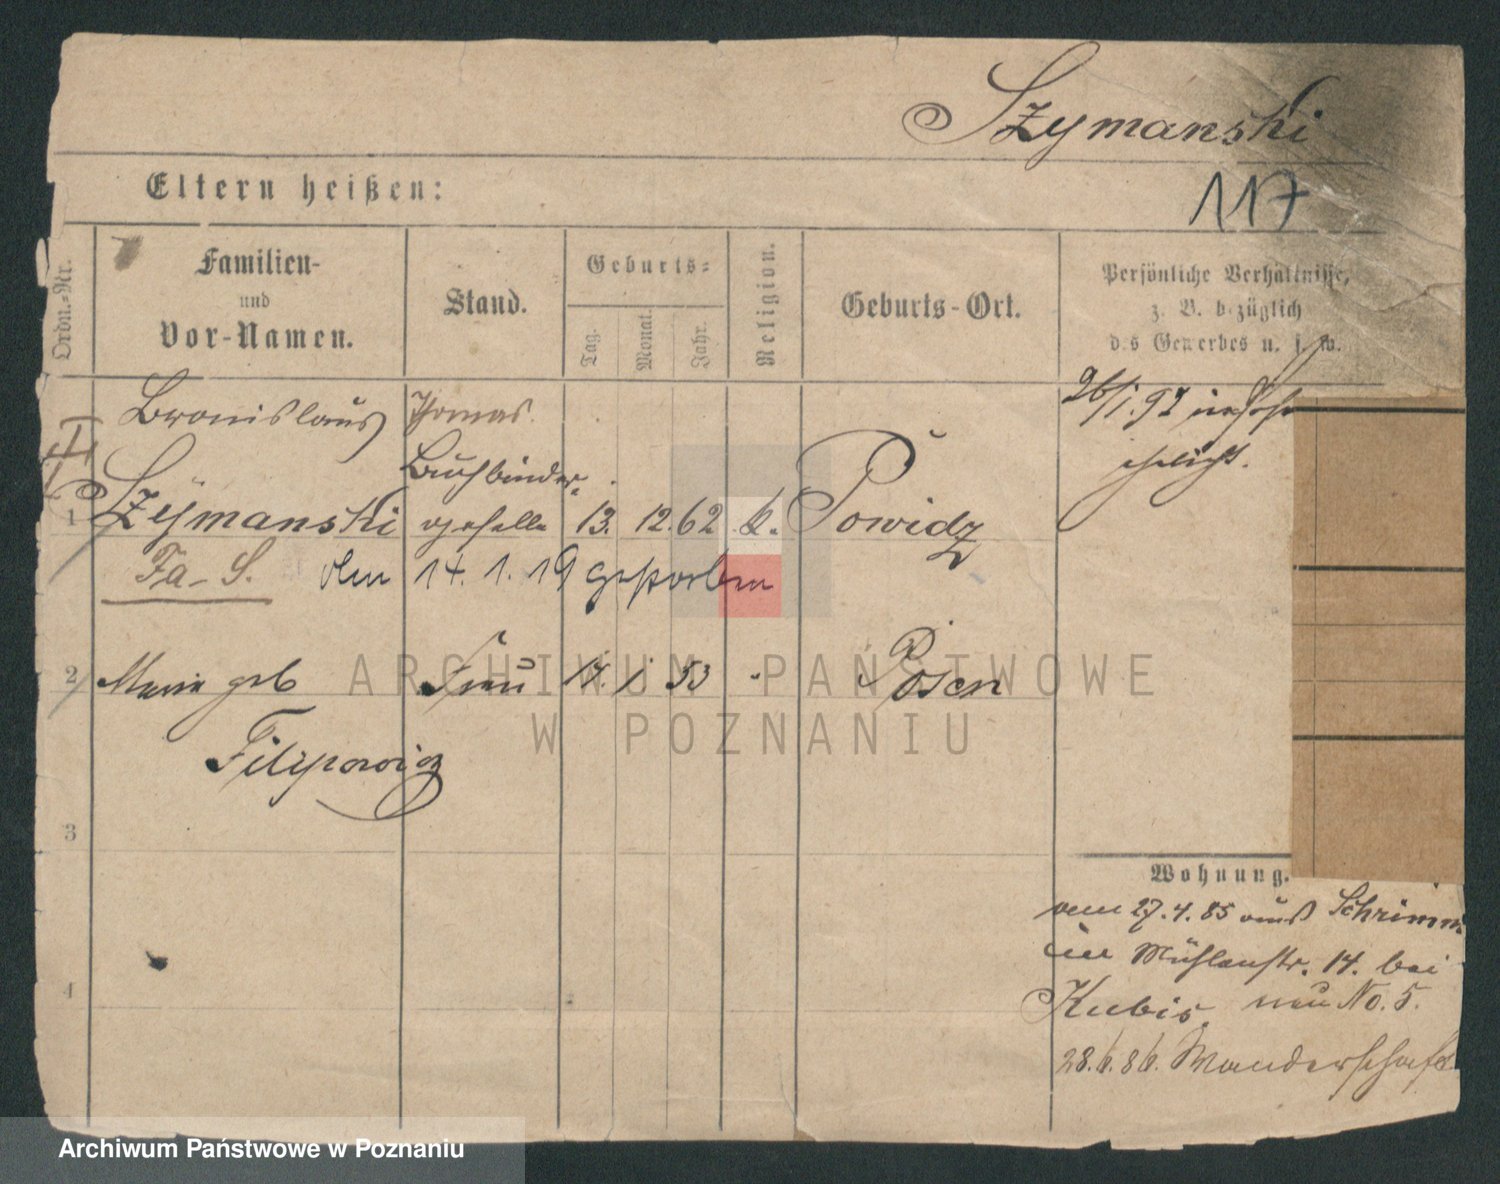 Szymanski
117
Eltern heißen:
Ordn.-Nr.
Familien-
und
Vor-Namen.
Stand.
Geburts-
Tag.
Monat.
Jahr.
Religion.
Geburts-Ort.
Persönliche Verhältnisse,
z. B. bezüglich
des Gewerbes u. s. w.
Bronislaus Thomas
1 Szymanski Buchbinder-
geselle 13. 12. 62 k. Powidz
26/1.92
ehelicht.
Fa- S. den 14. 1. 19 gestorben
2 Marie geb Frau 17 1 53 - Posen
Filipowicz
3
4
Wohnung.
vom 27.4.85 aus Schrimm
in Mühlenstr. 14. bei
Kubis neu No. 5.
28.6.86. Wanderschaft
ARCHIWUM PAŃSTWOWE
W POZNANIU
Archiwum Państwowe w Poznaniu